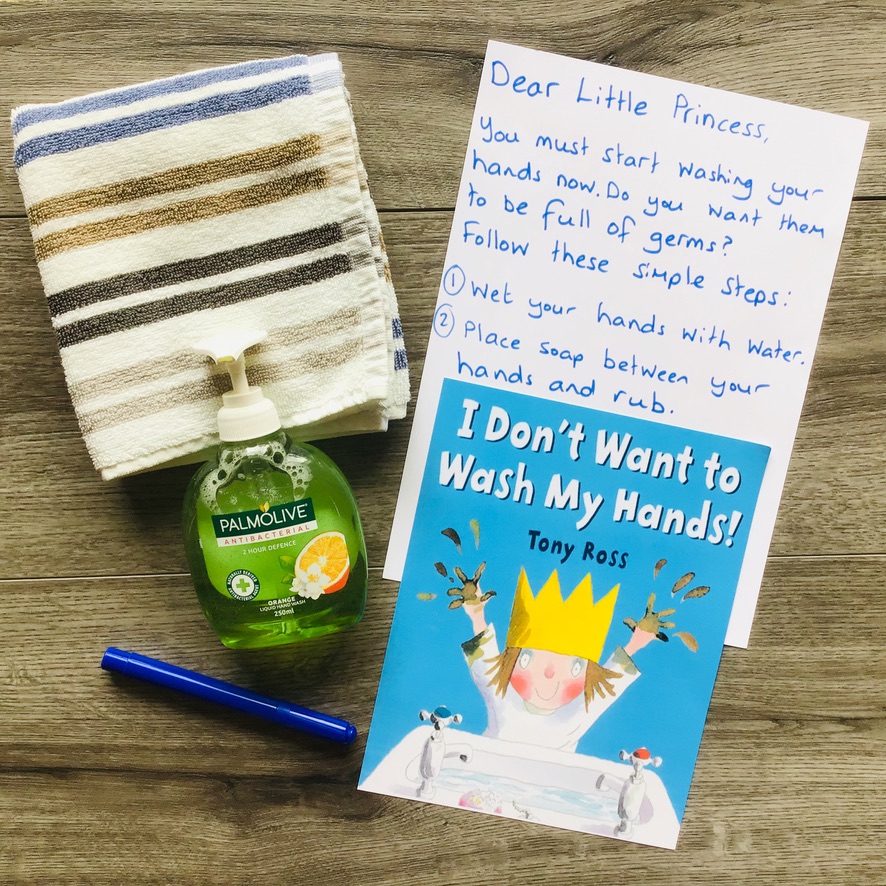 Dear Little Princess,
You must start washing your
hands now. Do you want them
to be full of germs?
Follow these simple steps:
① Wet your hands with water.
② Place soap between your
hands and rub.
I Don't Want to
Wash My Hands!
Tony Ross
PALMOLIVE
ANTIBACTERIAL
2 HOUR DEFENCE
ORANGE
LIQUID HAND WASH
250ml